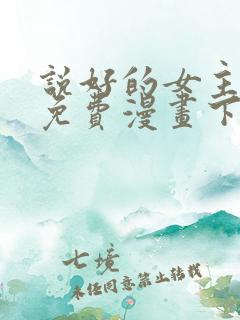 說好的女主
免費漫畫下
七境
未经同意禁止转载